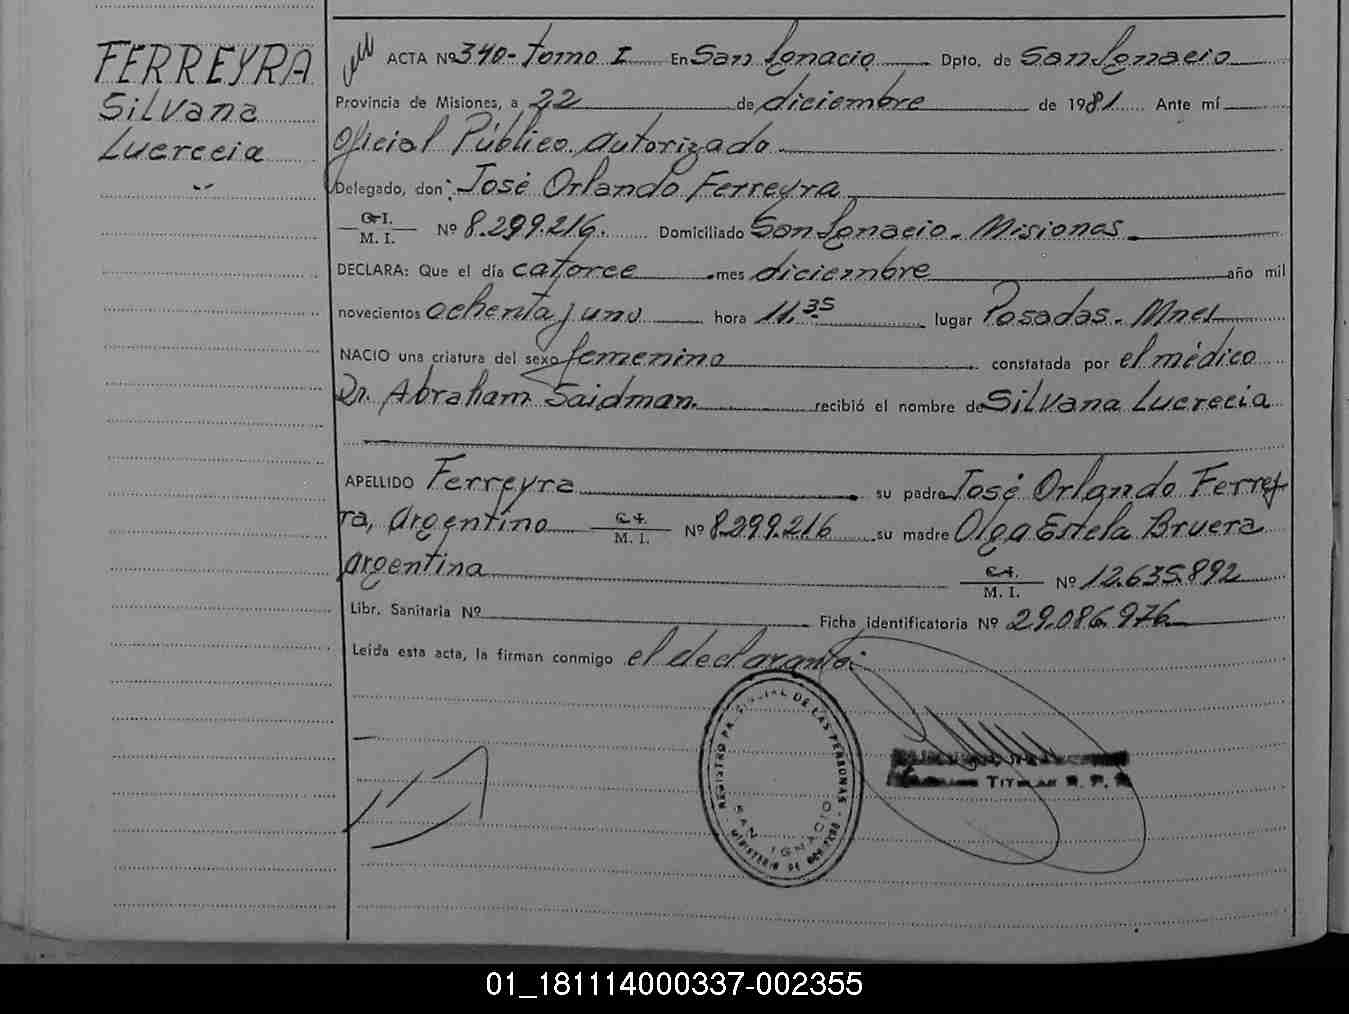 FERREYRA
Silvana
Lucrecia
ACTA Nº 340- Tomo I En San Ignacio Dpto. de San Ignacio
Provincia de Misiones, a 22 de diciembre de 1981. Ante mí
Oficial Público Autorizado
Delegado, don: José Orlando Ferreyra
C. I.
M. I. Nº 8.299.216. Domiciliado San Ignacio. Misiones.
DECLARA: Que el día catorce mes diciembre año mil
novecientos ochenta y uno hora 11.35 lugar Posadas. Mnes
NACIO una criatura del sexo femenino constatada por el médico
Dr. Abraham Saidman. recibió el nombre de Silvana Lucrecia
APELLIDO Ferreyra su padre José Orlando Ferrey
ra, Argentino C. I.
M. I. Nº 8.299.216 su madre Olga Estela Bruera
argentina C. I.
M. I. Nº 12.635.892
Libr. Sanitaria Nº Ficha identificatoria Nº 29.086.976
Leída esta acta, la firman conmigo el declarante.
REGISTRO PROVINCIAL DE LAS PERSONAS
SAN IGNACIO
MINISTERIO DE GOBIERNO
TITULAR R. P. P.
01_181114000337-002355